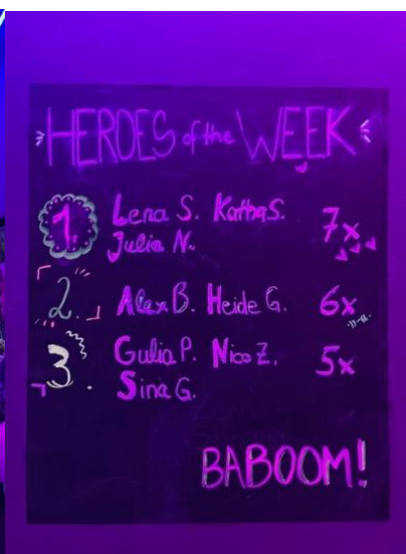 HEROES of the WEEK
1. Lena S. Katha S. 7x
Julia N.
2. Alex B. Heide G. 6x
3. Gulia P. Nico Z. 5x
Sina G.
BABOOM!